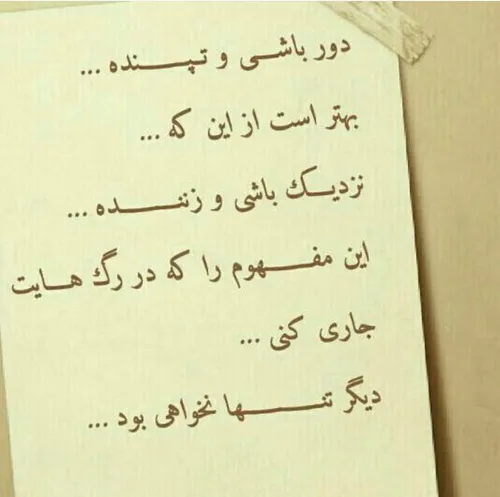 دور باشی و تپنده ...
بهتر است از این که ...
نزدیک باشی و زننده ...
این مفهوم را که در رگ هایت
جاری کنی ...
دیگر تنها نخواهی بود ...